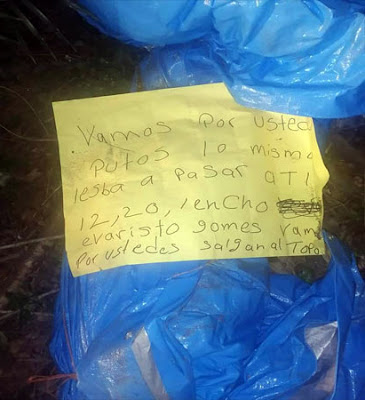 Vamos Por usted
Putos lo mismo
lesba a pasar aTi
12,20, lenCho
evaristo gomes vamo
Por ustedes salgan al Topo